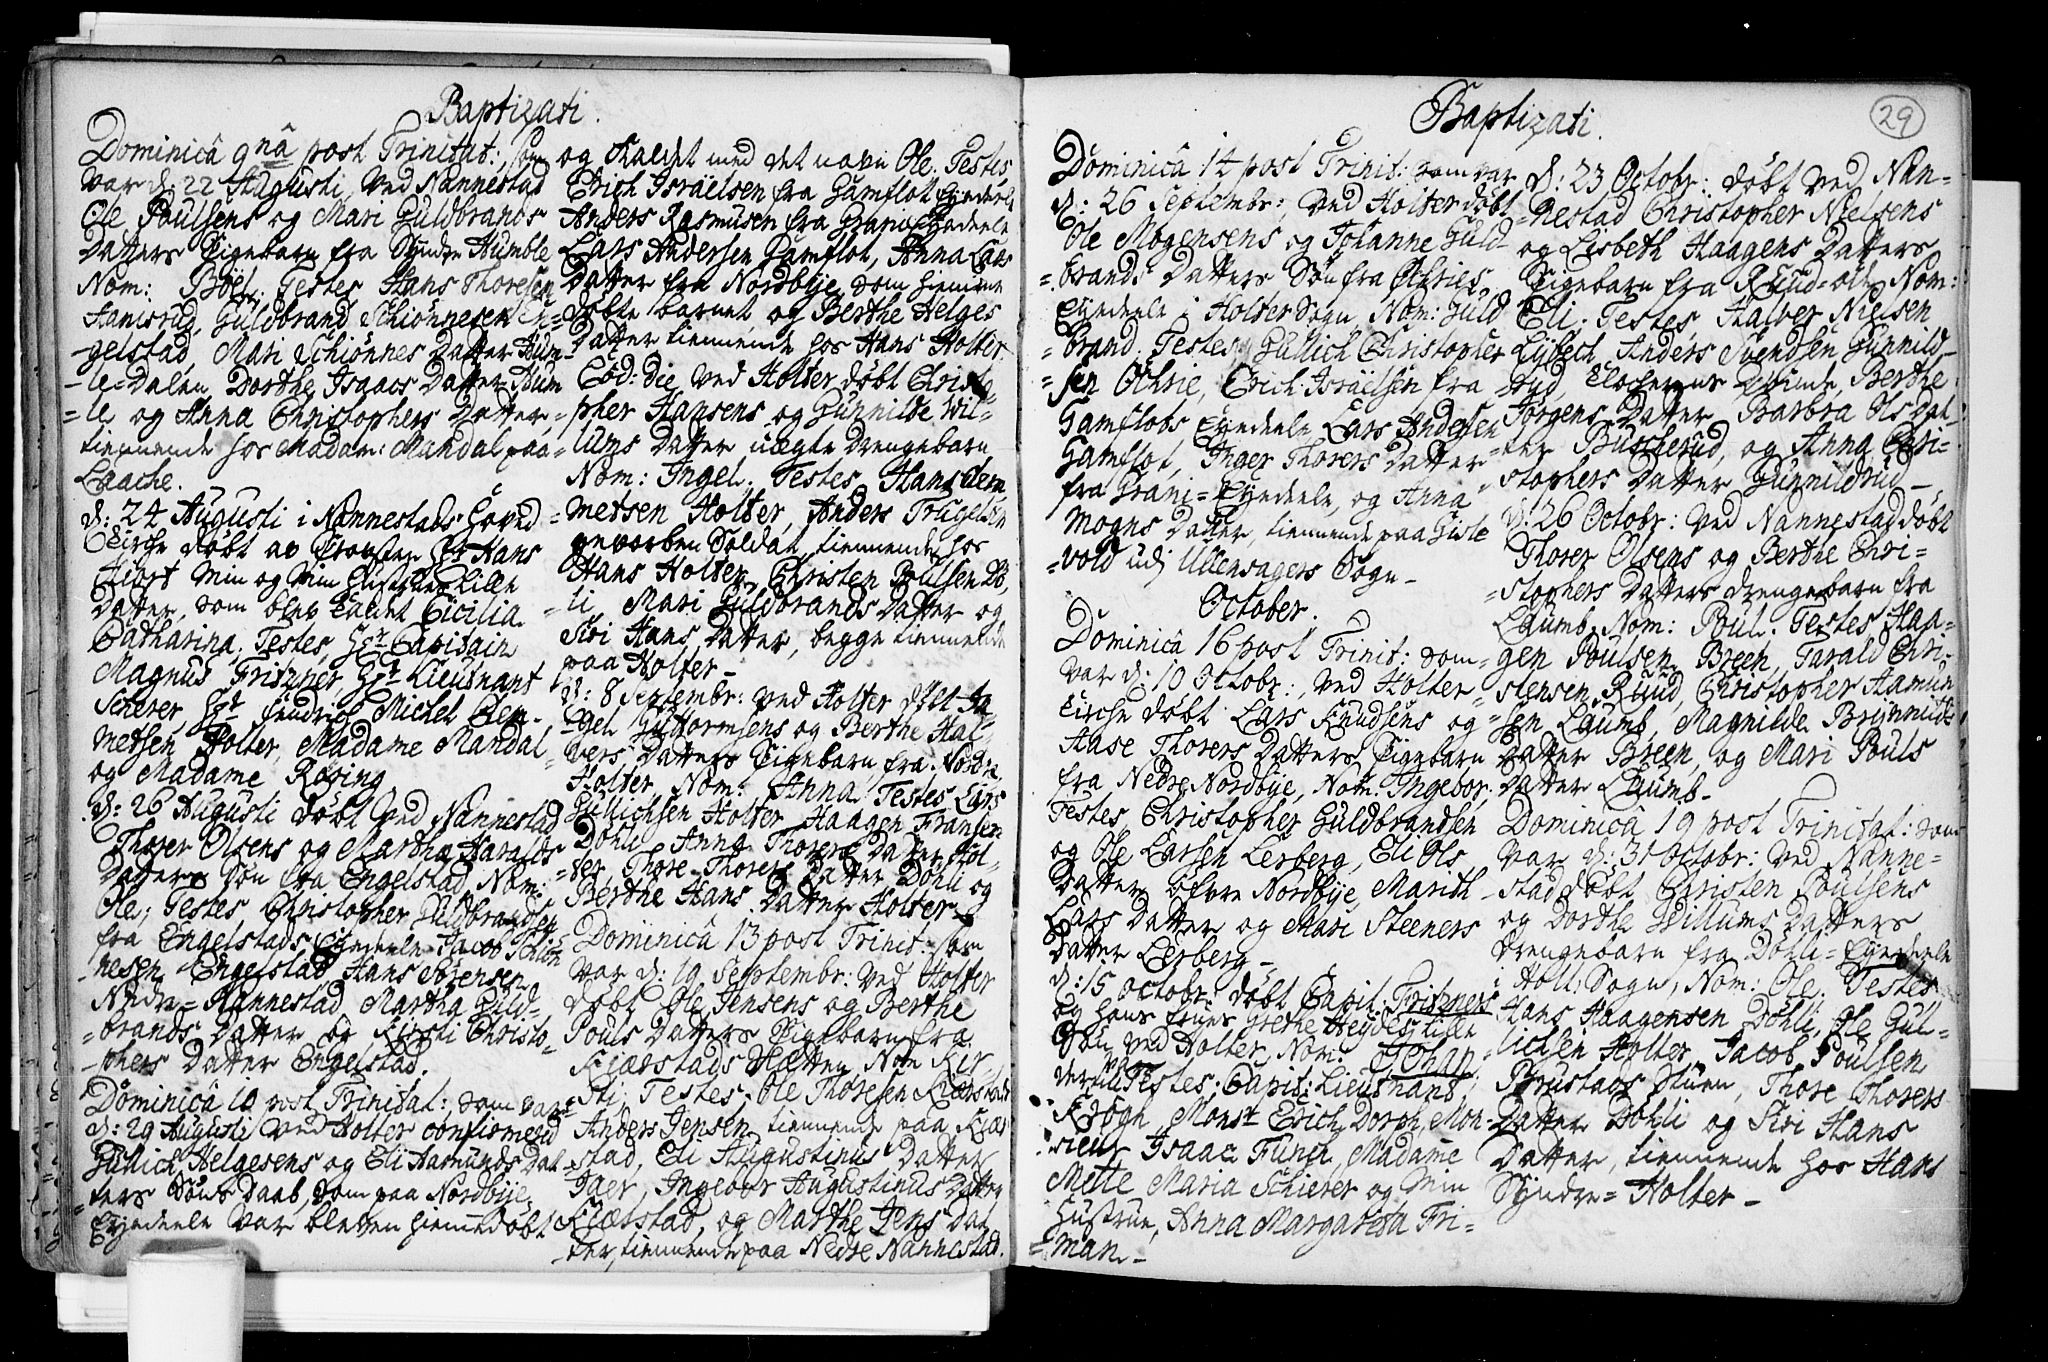 Baptizati.
Dominicâ 9nâ post Trinitat:, som
var d: 22 Augusti, ved Nannestad
Ole Poulsens og Mari Guldbrands
Datters Pigebarn fra Syndre Humble
Nom: Böel. Testes Hans Thoresen
Hamsrud, Guldbrand Schiönnesen En-
-gelstad, Mari Schiönnes Datter Hum-
-le-Dalen, Dorthe Isaacs Datter Hum
=le og Anna Christophers Datter,
tiennende hos Madam: Mandal paa
Laache.
d: 24 Augusti i Nannestads Hoved
Kirche döbt av Provsten Hr Hans
Hiort min og min Hustrues Lille
Datter, som blev kaldet Cicilia
Catharina; Testes, Hr Capitain
Magnus Fritzner, Hr Lieutnant
Scherer, Hr Fendrich Michel Clem-
metsen Holter, Madame Mandal
og Madame Rosing
d: 26 Augusti döbt ved Nannestad
Thorer Olsens og Marthe Haralds
Datters Sön fra Engelstad, Nom:
Ole; Testes, Christopher Guldbrandsen
fra Engelstads Eyedeele Jacob Schiön
nesen Engelstad, Hans Sörensen
Nedre=Nannestad Martha Guld-
=brands Datter og Kirsti Christo-
-phers Datter Engelstad.
Dominicâ 10 post Trinitat: som var
d: 29 Augusti ved Holter confirmerid
Gullich Helgesens og Eli Aamunds Dat
ters Söns Daab, som paa Nordbye
Eyedeele var bleven hiemmedöbt
og Kaldet med det navn Ole. Testes
Erich Israelsen fra Gamflot Eyedeele
Anders Rasmusen fra Grani Eyedeele
Lars Andersen Gamflot, Anna Lars
Datter fra Nordbye, som hiemme
döbte barnet og Berthe Helges
Datter tiennende hos Hans Holter
Eod: die ved Holter döbt Christo
pher Hansens og Gunnilde Wil-
lums Datter uægte Drengebarn
Nom: Ingel. Testes, Hans Clem
metsen Holter, Anders Trugelsen
gevorben Soldat, tiennende hos
Hans Holter, Christen Poulsen Dö-
li, Mari Guldbrands Datter og
Siri Hans Datter, begge tiennende
paa Holter-
d: 8 Septembr: ved Holter döbt In
gel Guttormsens og Berthe Hal-
vers Datters Pigebarn fra Nordre
Holter, Nom: Anna Testes Lars
Gullichsen Holter Haagen Fransen
Döhli Anna Thorers Datter Hol-
ter, Thore Thorers Datter Döhli og
Berthe Hans Datter Holter.
Dominicâ 13 post Trinit: som
var d: 19 Septembr: ved Holter
döbt Ole Jensens og Berthe
Pouls Datters Pigebarn fra
Kiærstads Hætten Nom Kir-
sti; Testes. Ole Thoresen Kiærstad
Anders Jensen tiennende paa Kiær
stad, Eli Augustinus Datter
Jaer, Ingebor Augustinus Datter
Kiærstad, og Marthe Jens Dat
ter, tiennende paa Nedre Nannestad.
Baptizati.
29
Dominicâ 14 post Trinit: som var
d: 26 Septembr:, ved Holter döbt
Ole Mogensens og Johanne Guld
=brands Datters Sön fra Ochries
Eyedeele i Holter Sogn, Nom: Guld
=brand. Testes, Gullich Christopher
=sen Ochrie, Erich Israelsen fra
Gamflots Eyedeele Lars Andersen
Gamflot, Inger Thorers Datter
fra Grani=Eyedeele, og Anna
Mogns Datter, tiennende paa Gisle
=vold udi Ullensagers Sogn-
October.
Dominicâ 16 post Trinit: som
var d: 10 Octobr:, ved Holter
Kirche döbt Lars Knudsens og
Aase Thorers Datters Pigebarn
fra Nedre Nordbye, Nom: Ingebor,
Testes Christopher Guldbrandsen
og Ole Larsen Lerberg, Eli Ols
Datter öfvre Nordbye, Marith
Lars Datter og Mari Steeners
Datter Lerberg-
d: 15 octobr: döbt Capit: Fritzners
og hans frues Grethe Heydes lille
Sön ved Holter, Nom: Johan
Testes. Capit: Lieutnant
Krogh, Monsr Erich Dorph, Mon-
sieur Isaac Funch, Madame
Mette Maria Schierer og Min
Hustrue, Anna Margareta Fri-
=man-
d: 23 Octobr: döbt ved Nan-
=nestad Christopher Nielsens
og Lisbeth Haagens Datters
Pigebarn fra Ruud=Nom:
Eli. Testes, Halver Nielsen
Lybech, Anders Svendsen Gunnild-
rud, Clocherens Qvinde, Berthe
Jörgens Datter, Barbra Ols Dat-
=ter Buscherud, og Anna Chri-
stophers Datter Gunnildrud-
d: 26 Octobr: ved Nannestad döbt
Thorer Olsens og Berthe Chri=
=stophers Datters Drengebarn fra
Laumb, Nom: Poul. Testes Haa-
gen Poulsen Breen, Tarald Chri-
stensen Ruud, Christopher Aamun
sen Laumb, Magnilde Brynnilds
Datter Breen, og Mari Pouls
Datter Laumb-
Dominicâ 19 post Trinitat: som
var d: 31 Octobr: ved Nanne-
stad döbt Christen Poulsens
og Dorthe Willums Datters
Drengebarn fra Döhli=Eyedeele
i Holt: Sogn, Nom: Ole, Testes
Hans Haagensen Döhli, Ole Gul-
lichsen Holter, Jacob Poulsen
Brustads Stuen, Thore Thorers
Datter Döhli og Siri Hans
Datter, tiennende hos Hans
Syndre=Holter-